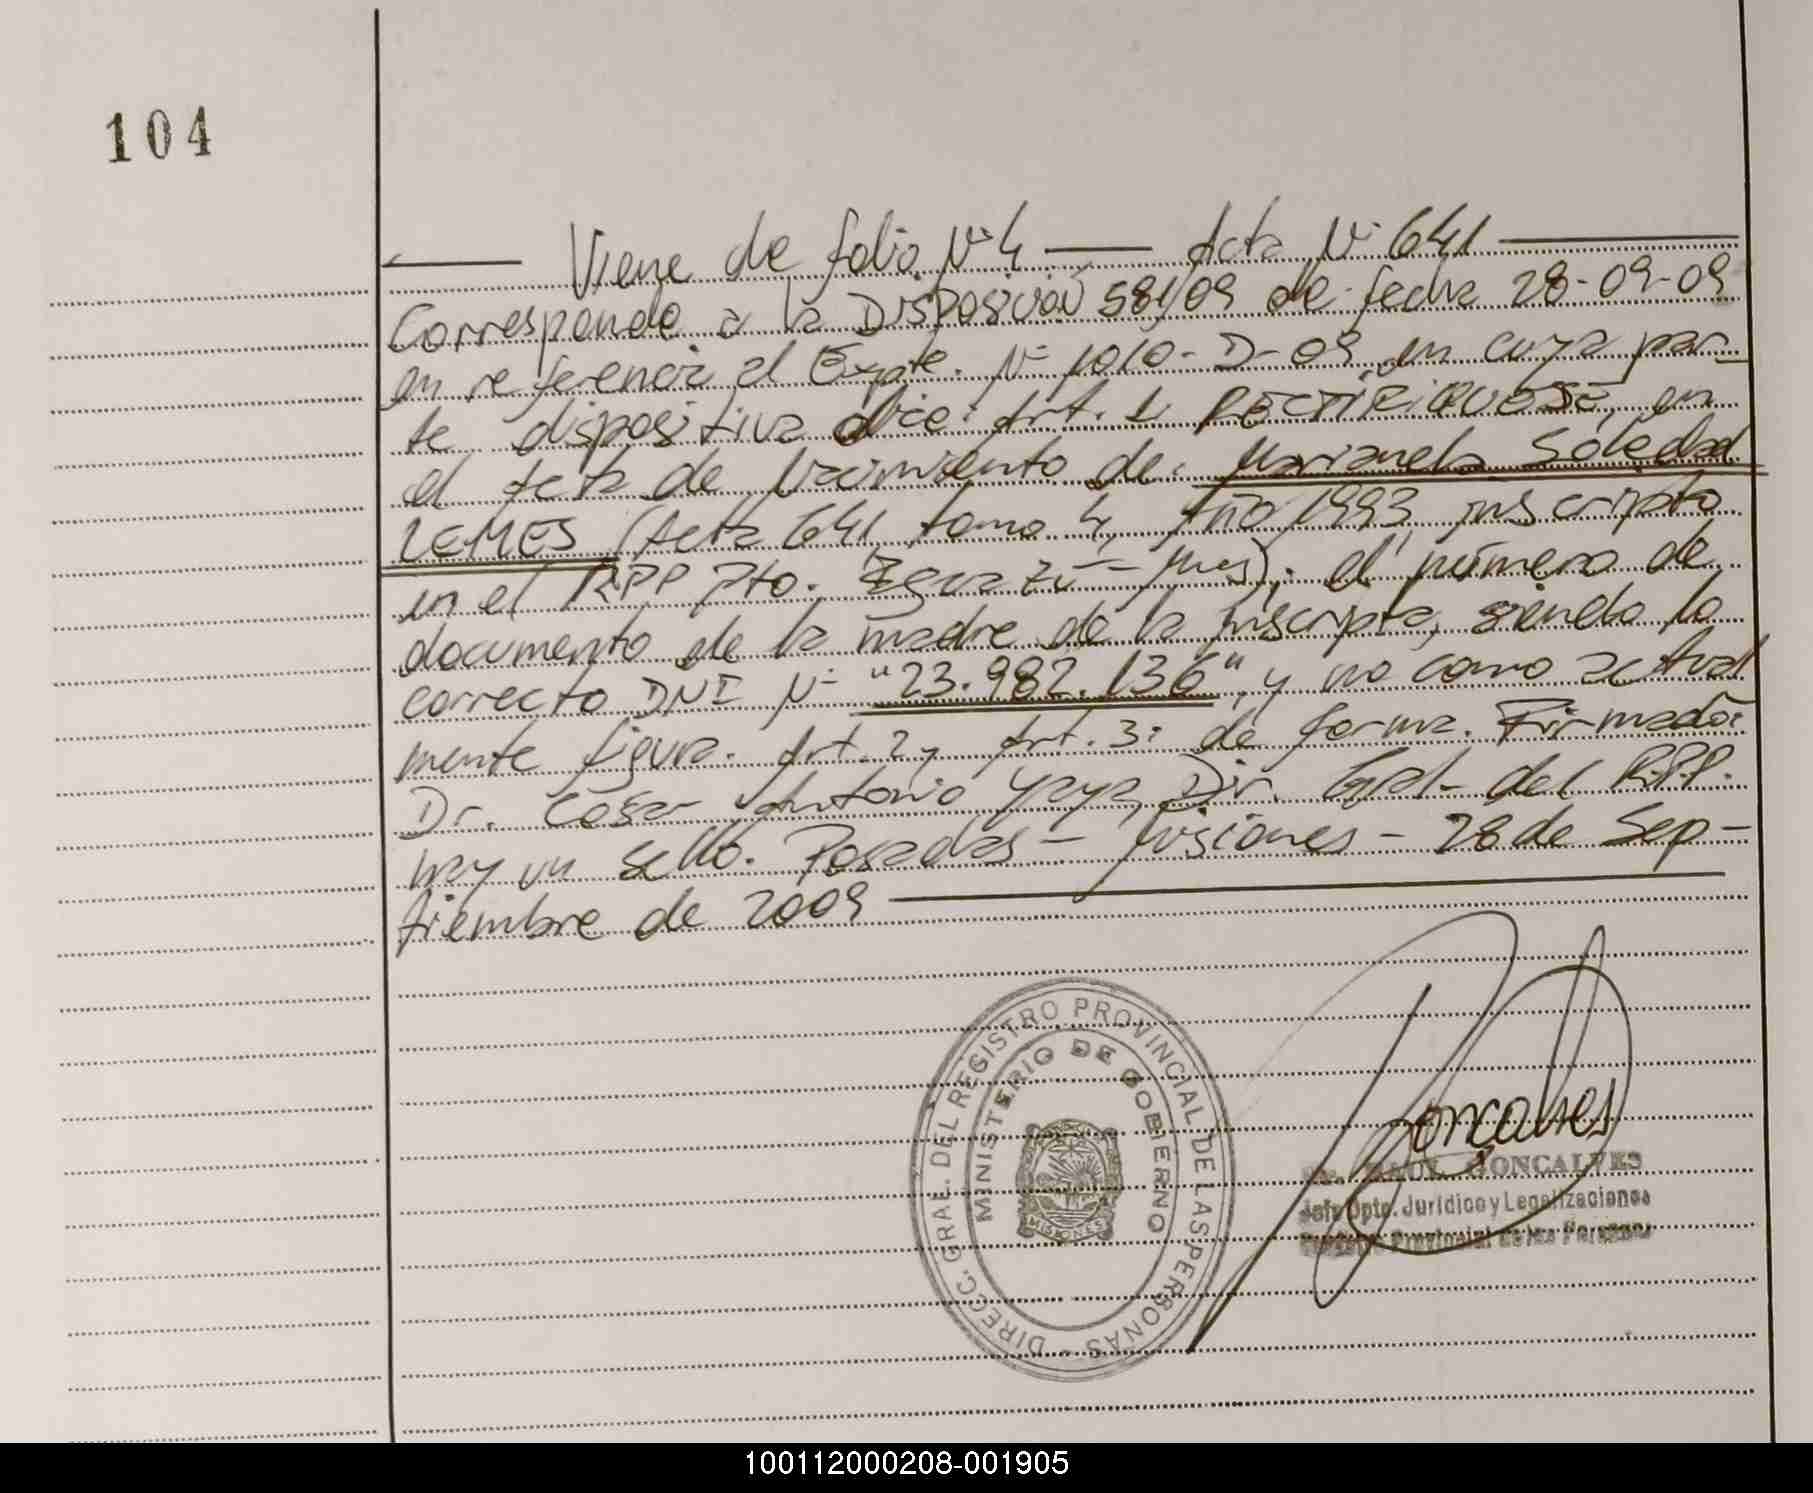 104
Viene de folio Nº 4 — Acta Nº 641
Corresponde a la Disposición 581/09 de fecha 28-09-09
en referencia al Expte. Nº 1010-D-09 en cuya par-
te dispositiva dice: Art. 1 RECTIFIQUESE, en
el acta de nacimiento de: Marianela Soledad
LEMES (Acta 641 tomo 4, Año 1993 inscripto
en el RPP Pto. Iguazú - Mnes), el número de
documento de la madre de la inscripta, siendo lo
correcto DNI Nº "23.982.136", y no como actual
mente figura. Art. 2 y Art. 3: de forma. Firmado:
Dr. César Antonio Yaya, Dir. Gral. del R.P.P.
Hay un sello. Posadas - Misiones - 28 de Sep-
tiembre de 2009
DIRECC. GRAL. DEL REGISTRO PROVINCIAL DE LAS PERSONAS -
MINISTERIO DE GOBIERNO
MISIONES
Goncalves
Dr. RAUL GONCALVES
Jefe Dpto. Jurídico y Legalizaciones
Registro Provincial de las Personas
100112000208-001905